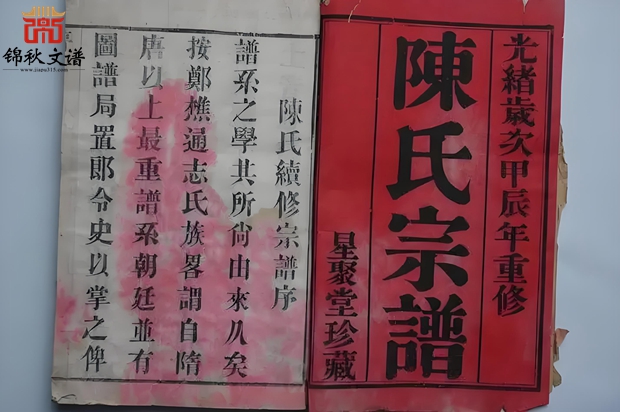 光緒歲次甲辰年重修
陳氏宗譜
星聚堂珍藏
陳氏續修宗譜序
譜系之學其所尙由來久矣
按鄭樵通志氏族畧謂自隋
唐以上最重譜系朝廷並有
圖譜局置郎令史以掌之俾
锦秋文谱
www.jiapu315.com